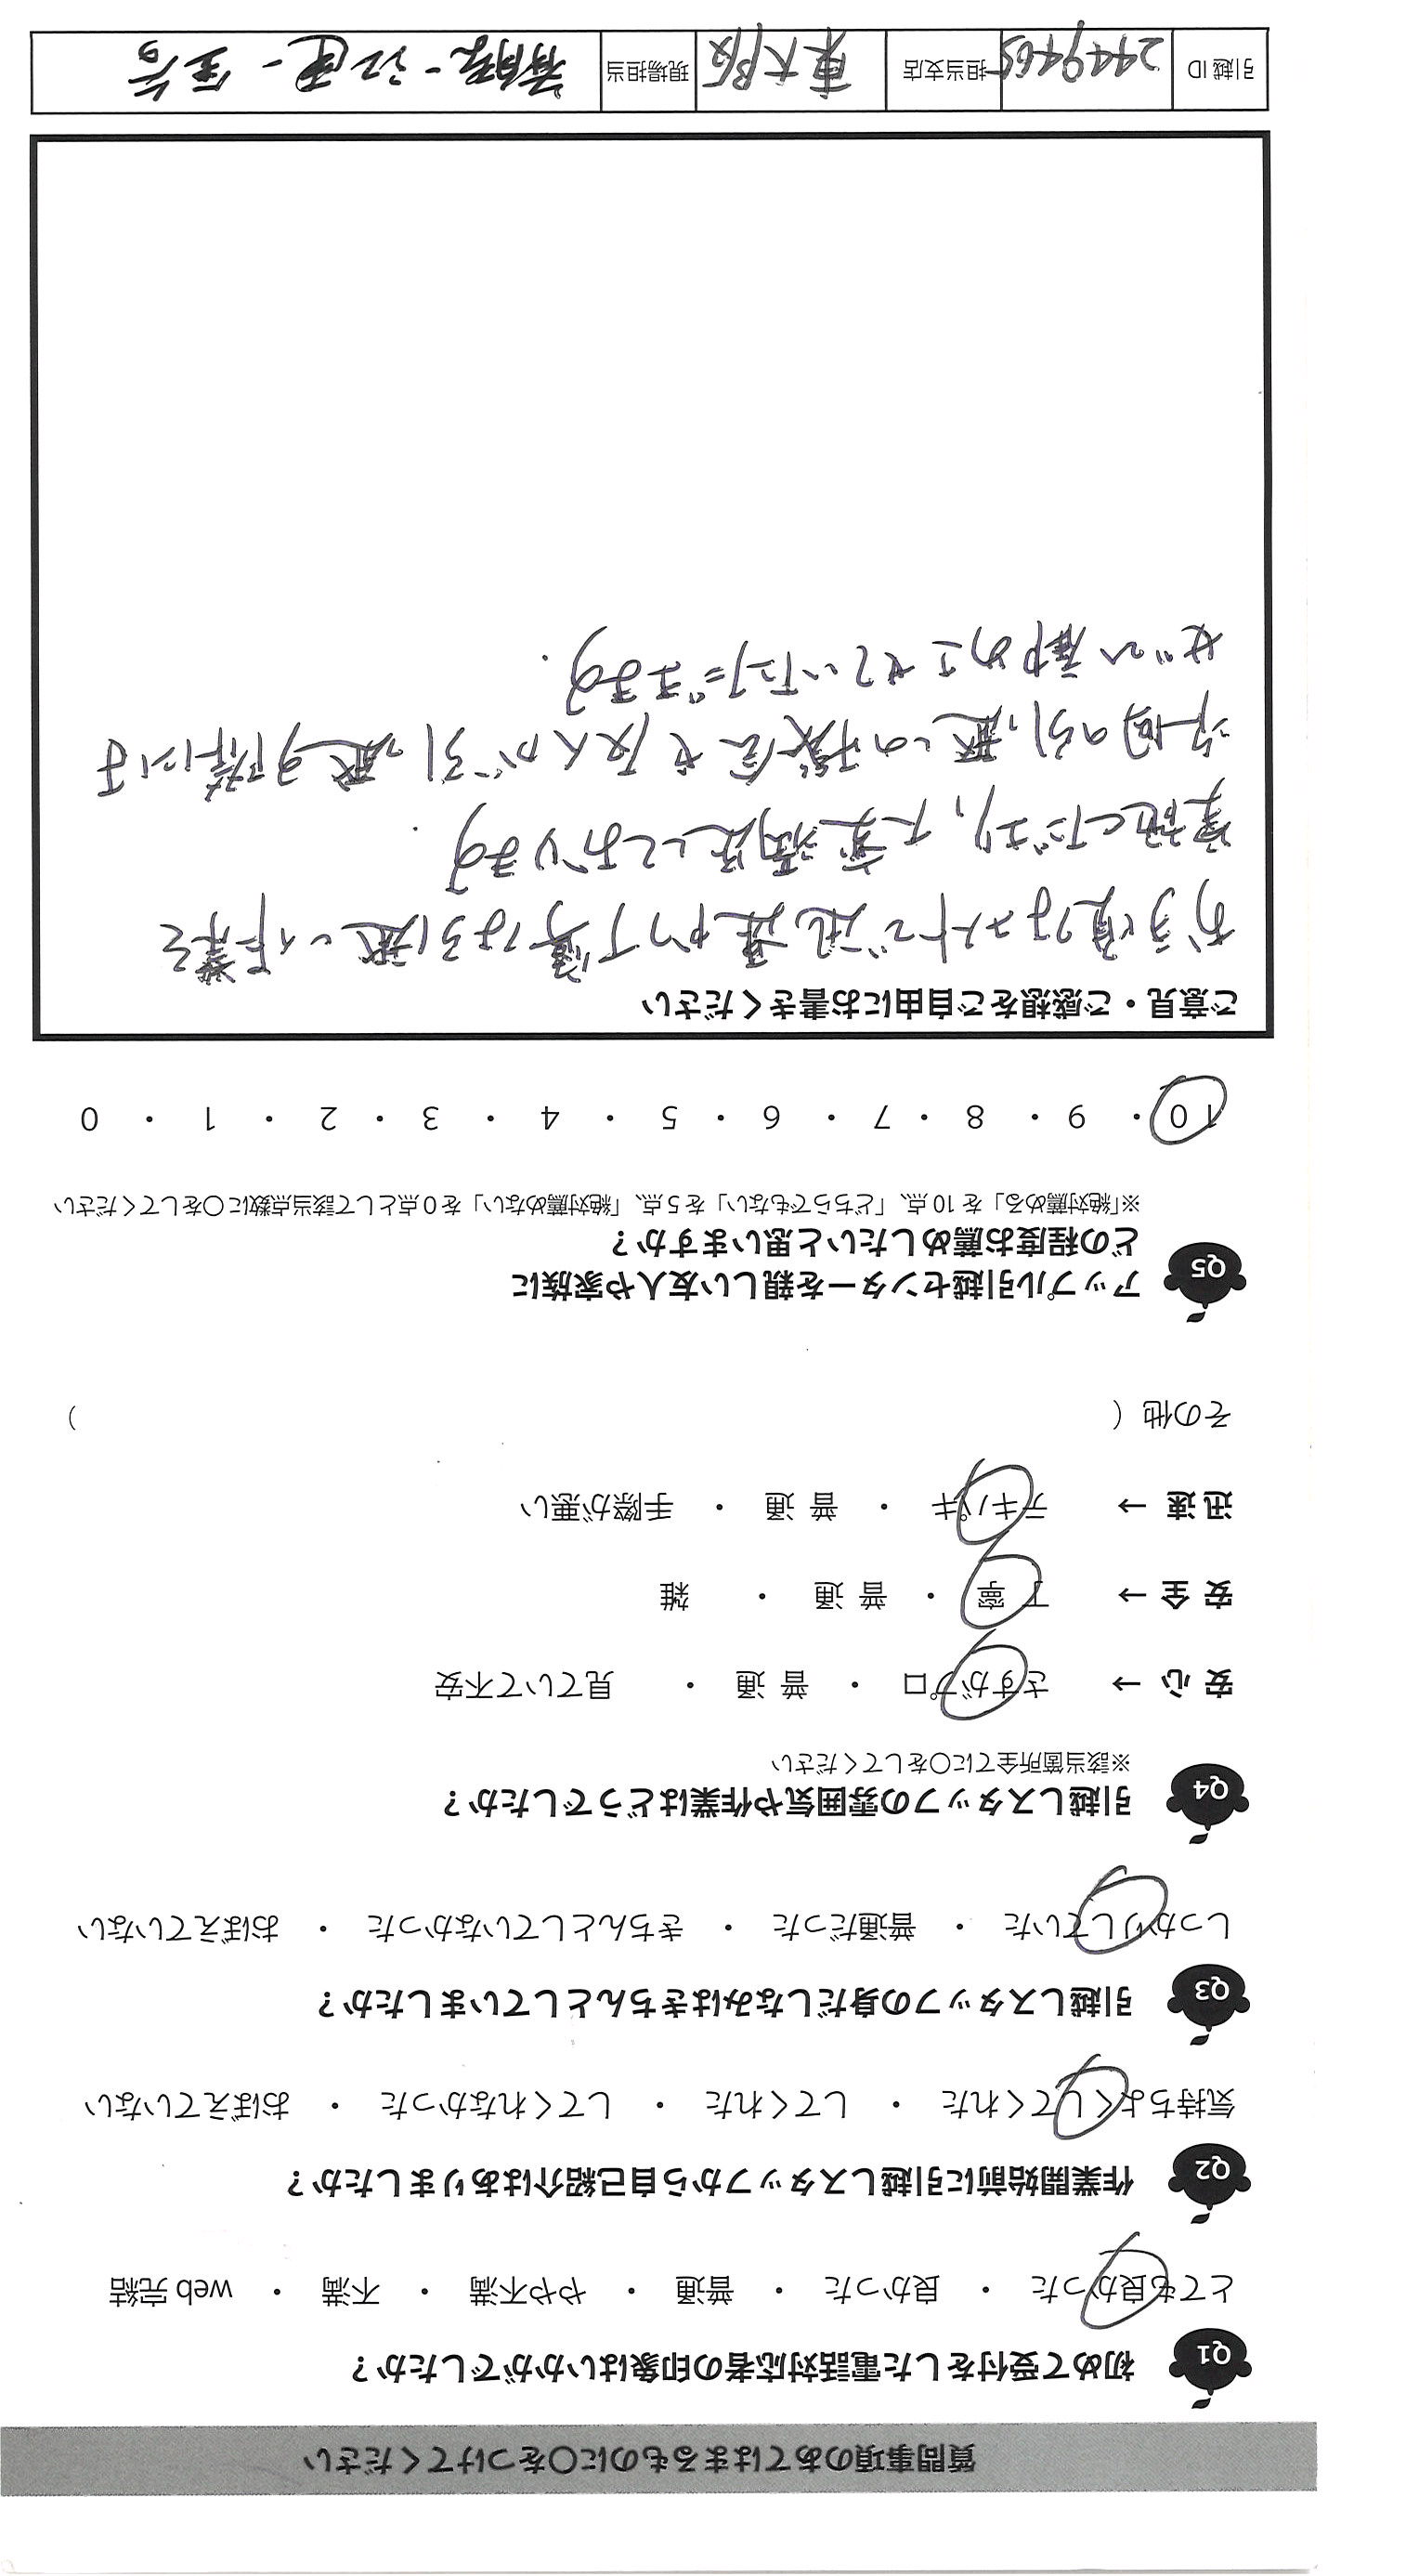 質問事項のあてはまるものに〇をつけてください
Q1 初めて受付をした電話対応者の印象はいかがでしたか？
とても良かった ・ 良かった ・ 普通 ・ やや不満 ・ 不満 ・ web 完結
Q2 作業開始前に引越しスタッフから自己紹介はありましたか？
気持ちよくしてくれた ・ してくれた ・ してくれなかった ・ おぼえていない
Q3 引越しスタッフの身だしなみはきちんとしていましたか？
しっかりしていた ・ 普通だった ・ きちんとしていなかった ・ おぼえていない
Q4 引越しスタッフの雰囲気や作業はどうでしたか？
※該当箇所全てに〇をしてください
安 心 → さすがプロ ・ 普 通 ・ 見ていて不安
安 全 → 丁 寧 ・ 普 通 ・ 雑
迅 速 → テキパキ ・ 普 通 ・ 手際が悪い
その他（ ）
Q5 アップル引越センターを親しい友人や家族に
どの程度お薦めしたいと思いますか？
※「絶対薦める」を 10 点、「どちらでもない」を 5 点、「絶対薦めない」を 0 点として該当点数に〇をしてください
10 ・ 9 ・ 8 ・ 7 ・ 6 ・ 5 ・ 4 ・ 3 ・ 2 ・ 1 ・ 0
ご意見・ご感想をご自由にお書きください
お手頃なコストで迅速かつ丁寧な引越し作業を
実施くださり、大変満足しております.
次回の引越しの機会や友人が引越す際には
ぜひ薦めさせていただきます.
引越 ID 2449465 担当支店 東大阪 現場担当